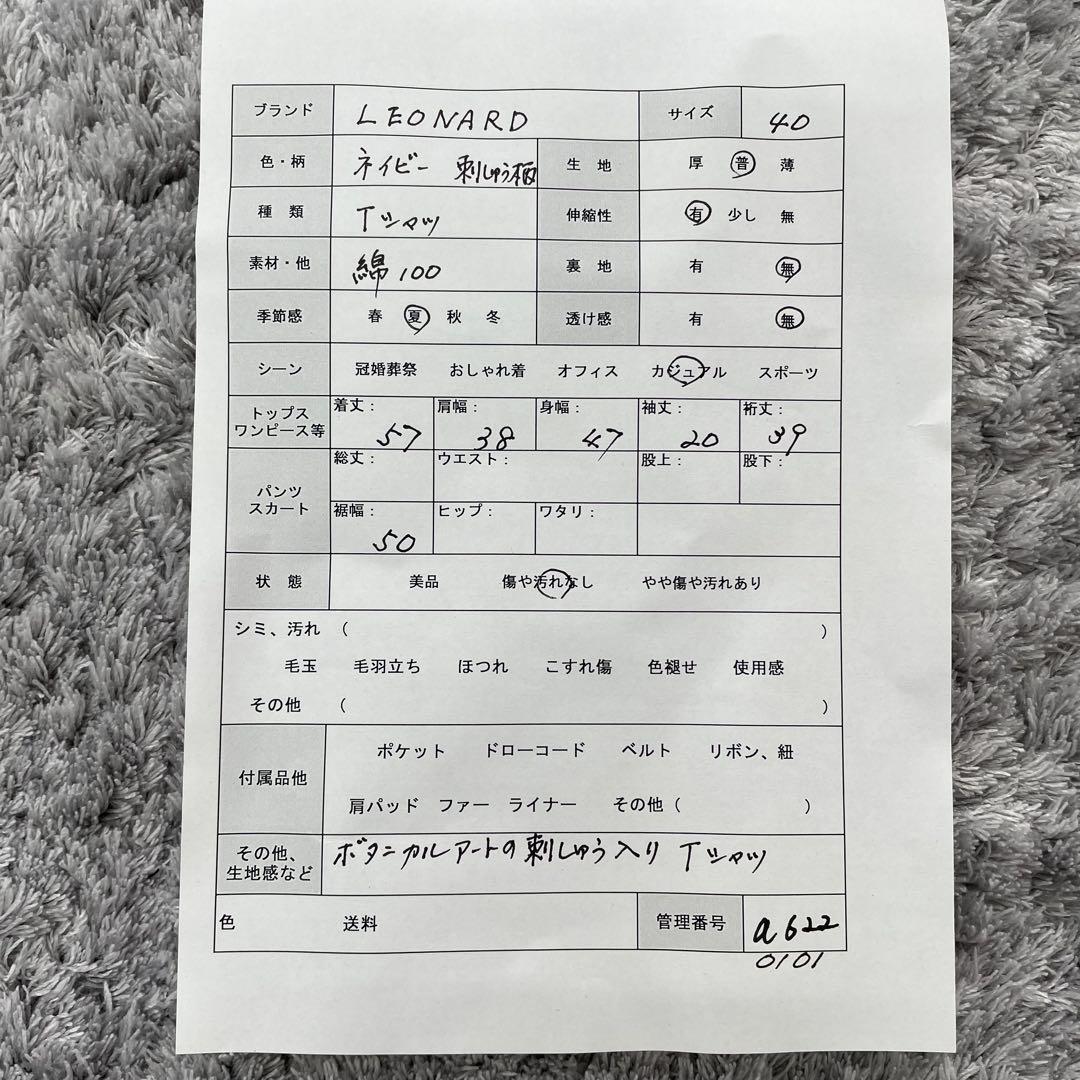 ブランド LEONARD サイズ 40
色・柄 ネイビー 刺しゅう柄 生地 厚 普 薄
種類 Tシャツ 伸縮性 有 少し 無
素材・他 綿100 裏地 有 無
季節感 春 夏 秋 冬 透け感 有 無
シーン 冠婚葬祭 おしゃれ着 オフィス カジュアル スポーツ
トップス
ワンピース等 着丈: 57 肩幅: 38 身幅: 47 袖丈: 20 裄丈: 39
パンツ
スカート 総丈: ウエスト: 股上: 股下:
裾幅: 50 ヒップ: ワタリ:
状態 美品 傷や汚れなし やや傷や汚れあり
シミ、汚れ ( )
毛玉 毛羽立ち ほつれ こすれ傷 色褪せ 使用感
その他 ( )
付属品他 ポケット ドローコード ベルト リボン、紐
肩パッド ファー ライナー その他 ( )
その他、
生地感など ボタニカルアートの刺しゅう入り Tシャツ
色 送料 管理番号 a622
0101